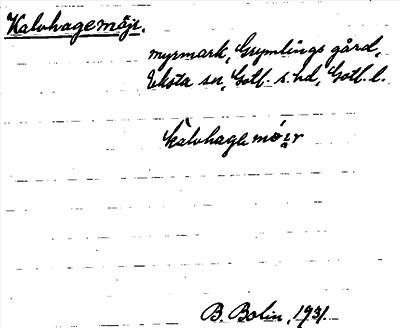 Kalvhagemöjr.
myrmark, Grymlings gård,
Eksta sn, Gotl. s. hd, Gotl. l.
kàlvhagemø̀i̯r
B. Bolin, 1931.